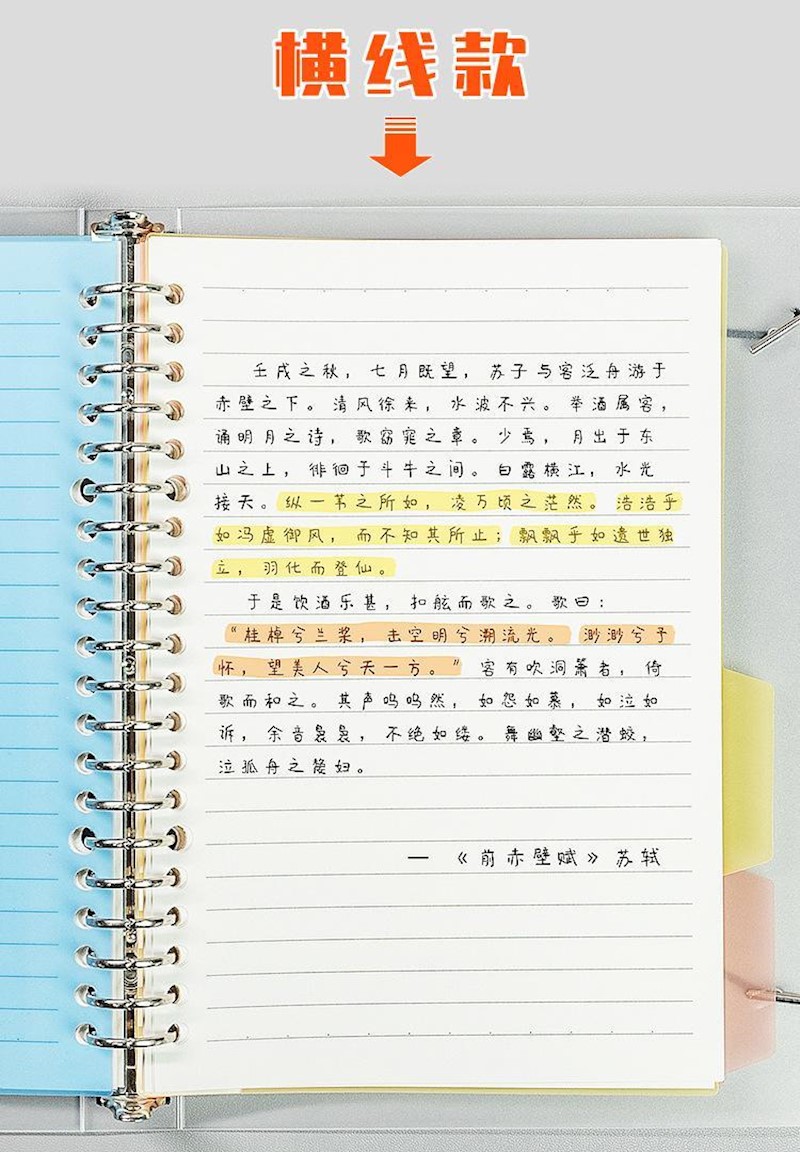 横线款
壬戌之秋，七月既望，苏子与客泛舟游于
赤壁之下。清风徐来，水波不兴。举酒属客，
诵明月之诗，歌窈窕之章。少焉，月出于东
山之上，徘徊于斗牛之间。白露横江，水光
接天。纵一苇之所如，凌万顷之茫然。浩浩乎
如冯虚御风，而不知其所止；飘飘乎如遗世独
立，羽化而登仙。
于是饮酒乐甚，扣舷而歌之。歌曰：
“桂棹兮兰桨，击空明兮溯流光。渺渺兮予
怀，望美人兮天一方。”客有吹洞箫者，倚
歌而和之。其声呜呜然，如怨如慕，如泣如
诉，余音袅袅，不绝如缕。舞幽壑之潜蛟，
泣孤舟之嫠妇。
— 《前赤壁赋》苏轼